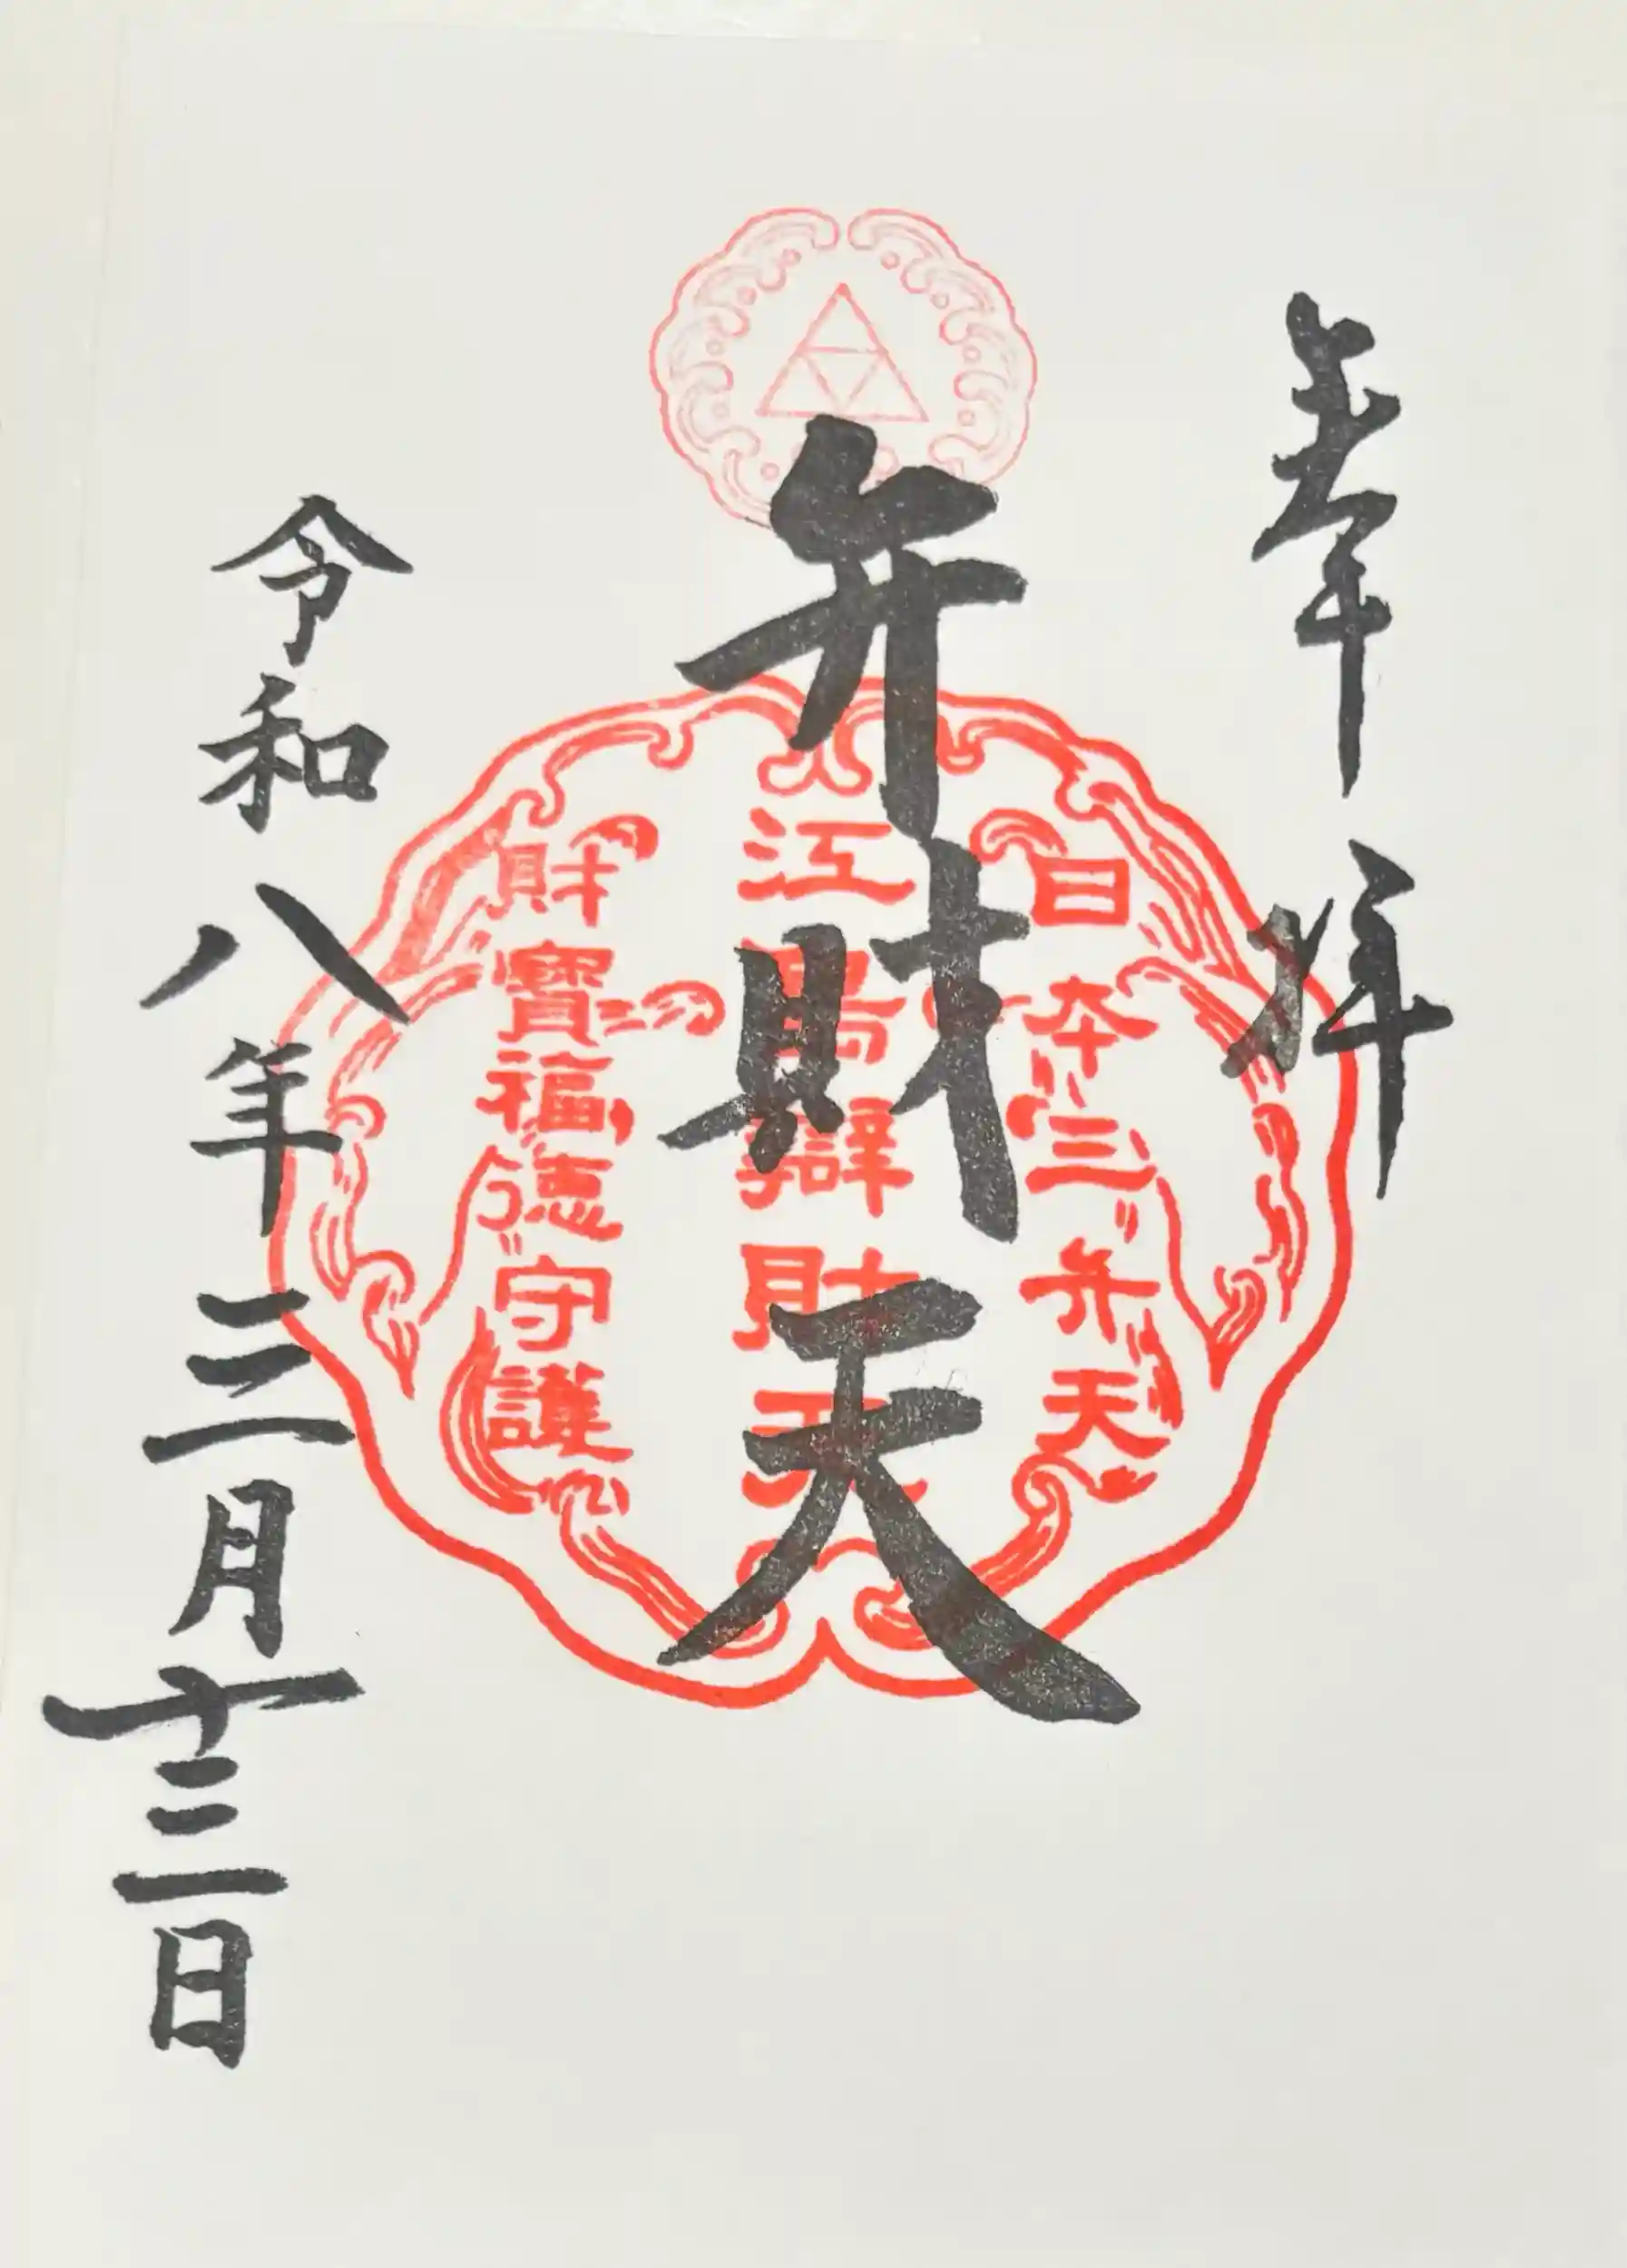 奉拝
弁財天
日本三弁天
江島辯財天
財寶福徳守護
令和八年三月十三日